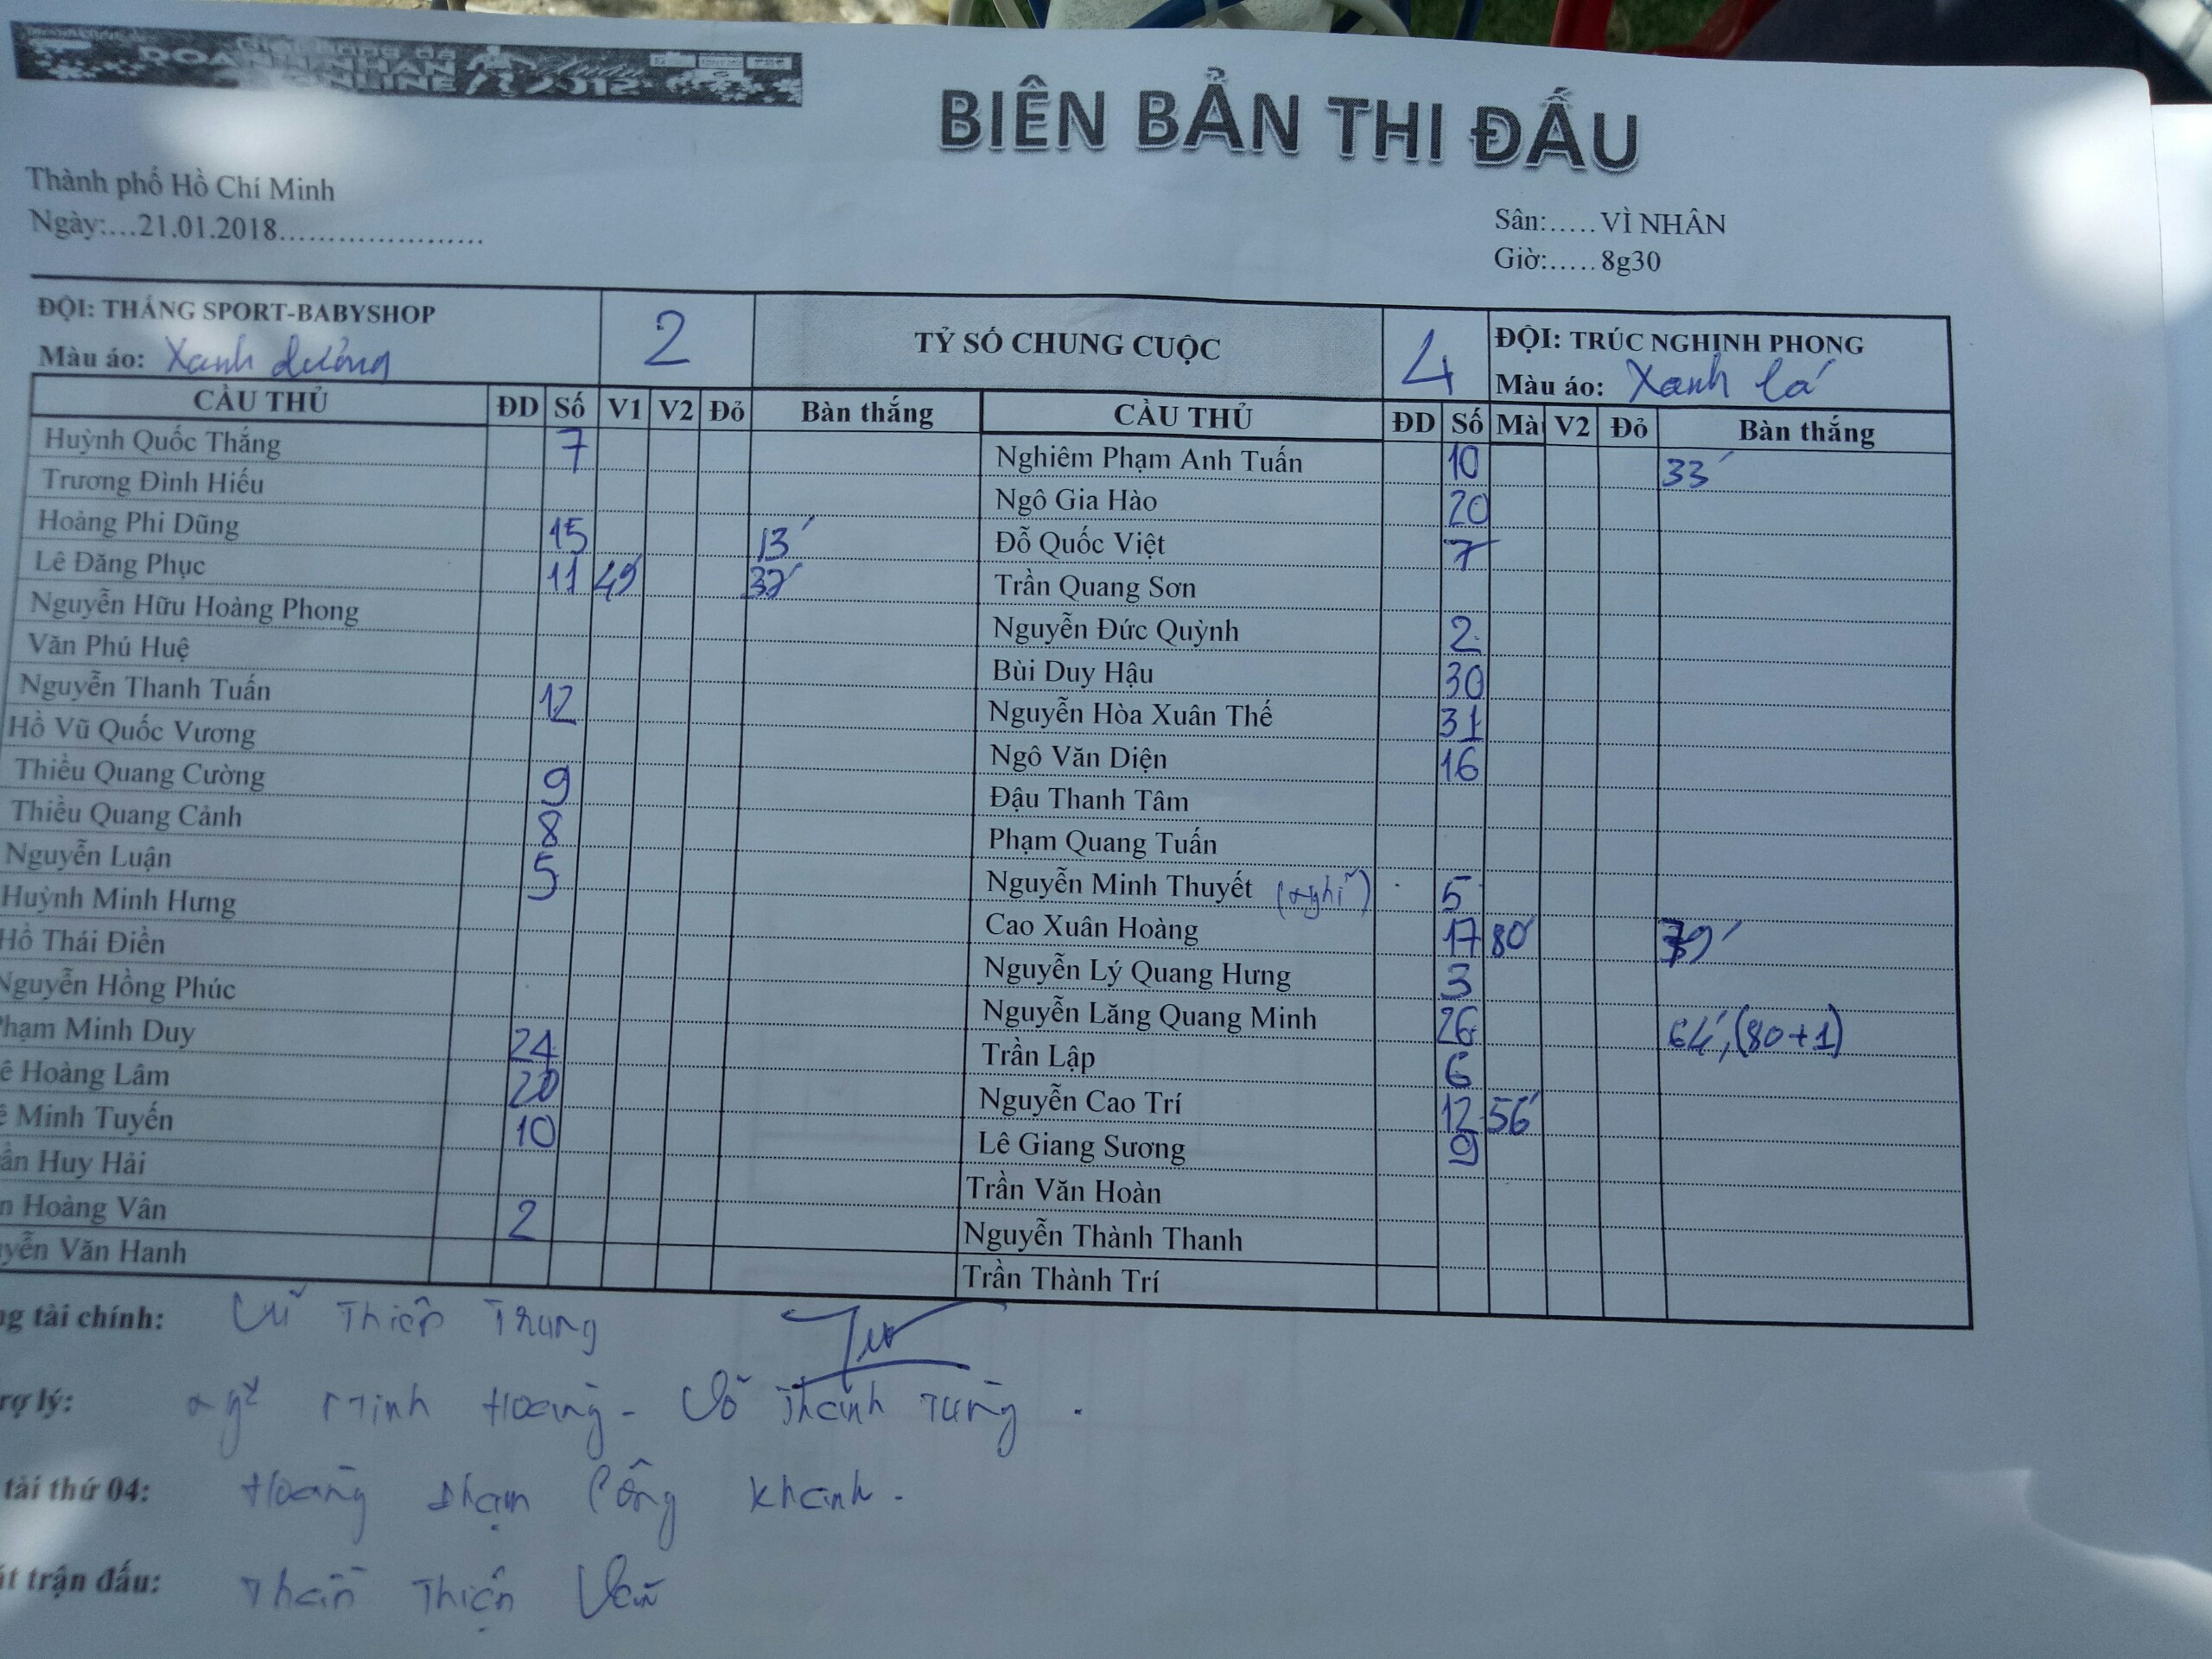 Giải bóng đá
DOANH NHÂN
ONLINE 2012
BIÊN BẢN THI ĐẤU
Thành phố Hồ Chí Minh
Ngày:...21.01.2018.....................
Sân:..... VÌ NHÂN
Giờ:..... 8g30
ĐỘI: THẮNG SPORT-BABYSHOP 2 TỶ SỐ CHUNG CUỘC 4 ĐỘI: TRÚC NGHINH PHONG
Màu áo: Xanh dương Màu áo: Xanh lá
CẦU THỦ ĐD Số V1 V2 Đỏ Bàn thắng CẦU THỦ ĐD Số Mà V2 Đỏ Bàn thắng
Huỳnh Quốc Thắng 7 Nghiêm Phạm Anh Tuấn 10 33'
Trương Đình Hiếu Ngô Gia Hào 20
Hoàng Phi Dũng 15 13' Đỗ Quốc Việt 7
Lê Đăng Phục 11 Trần Quang Sơn
Nguyễn Hữu Hoàng Phong Nguyễn Đức Quỳnh 2
Văn Phú Huệ Bùi Duy Hậu 30
Nguyễn Thanh Tuấn 12 Nguyễn Hòa Xuân Thế 31
Hồ Vũ Quốc Vương Ngô Văn Diện 16
Thiều Quang Cường 9 Đậu Thanh Tâm
Thiều Quang Cảnh 8 Phạm Quang Tuấn
Nguyễn Luận 5 Nguyễn Minh Thuyết (nghỉ) 5
Huỳnh Minh Hưng Cao Xuân Hoàng 17 80' 79'
Hồ Thái Điền Nguyễn Lý Quang Hưng 3
Nguyễn Hồng Phúc Nguyễn Lăng Quang Minh 26 64', (80+1)
Phạm Minh Duy 24 Trần Lập 6
ê Hoàng Lâm 20 Nguyễn Cao Trí 12 56'
ê Minh Tuyến 10 Lê Giang Sương 9
ần Huy Hải Trần Văn Hoàn
n Hoàng Vân 2 Nguyễn Thành Thanh
yễn Văn Hanh Trần Thành Trí
ng tài chính: Thiện Trung
rợ lý: Minh Hoàng - Võ Thanh Tùng .
tài thứ 04: Hoàng Phạm Công Khanh .
át trận đấu: Thiện Văn